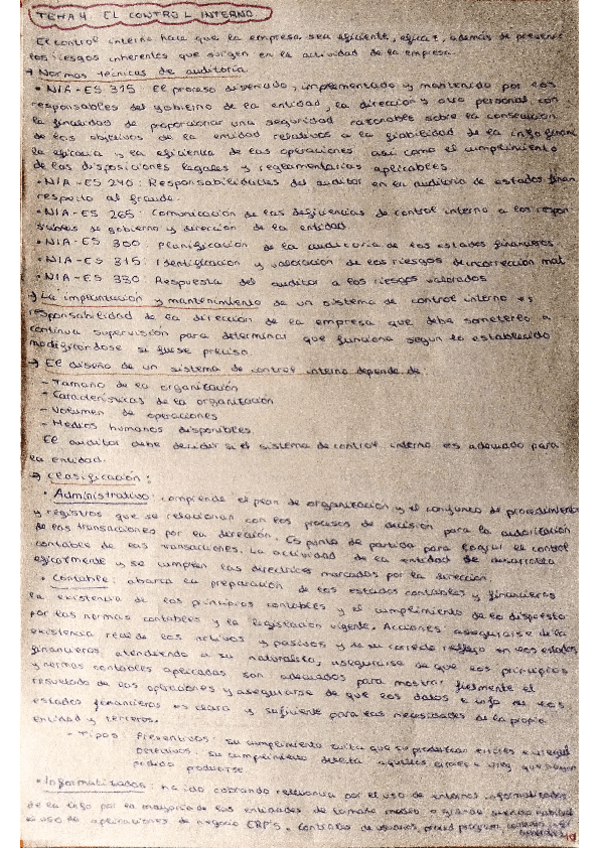 TEMA 4 EL CONTROL INTERNO
El control interno hace que la empresa sea eficiente, eficaz, además de prevenir
los riesgos inherentes que surgen en la actividad de la empresa.
→ Normas técnicas de auditoría
• NIA-ES 315: El proceso diseñado, implementado y mantenido por los
responsables del gobierno de la entidad, la dirección y otro personal, con
la finalidad de proporcionar una seguridad razonable sobre la consecución
de los objetivos de la entidad relativos a la fiabilidad de la info finan
la eficacia y la eficiencia de las operaciones así como el cumplimiento
de las disposiciones legales y reglamentarias aplicables
• NIA-ES 240: Responsabilidades del auditor en la auditoría de estados finan
respecto al fraude.
• NIA-ES 265: Comunicación de las deficiencias de control interno a los respon
sables de gobierno y dirección de la entidad.
• NIA-ES 300: Planificación de la auditoría de los estados financieros
• NIA-ES 315: Identificación y valoración de los riesgos de incorrección mat
• NIA-ES 330: Respuesta del auditor a los riesgos valorados
→ La implantación y mantenimiento de un sistema de control interno es
responsabilidad de la dirección de la empresa que debe someterlo a
continua supervisión para determinar que funciona según lo establecido
modificándose si fuese preciso.
→ El diseño de un sistema de control interno depende de:
- Tamaño de la organización
- Características de la organización
- Volumen de operaciones
- Medios humanos disponibles
El auditor debe decidir si el sistema de control interno es adecuado para
la entidad.
→ Clasificación:
• Administrativo: comprende el plan de organización y el conjunto de procedimiento
y registros que se relacionan con los procesos de decisión para la autorización
de las transacciones por la dirección. Es punto de partida para el control
contable de las transacciones. La actividad de la entidad se desarrolla
eficazmente y se cumplan las directrices marcadas por la dirección.
• Contable: abarca la preparación de los estados contables y financieros
la existencia de los principios contables y el cumplimiento de lo dispuesto
por las normas contables y la legislación vigente. Acciones: asegurarse de la
existencia real de los activos y pasivos y de su correcto reflejo en los estados
financieros atendiendo a su naturaleza, asegurarse de que los principios
y normas contables aplicadas son adecuados para mostrar fielmente el
resultado de las operaciones y asegurarse de que los datos e info de los
estados financieros es clara y suficiente para las necesidades de la propia
entidad y terceros.
- Tipos Preventivos: su cumplimiento evita que se produzcan errores e irregul
Detectivos: su cumplimiento detecta aquellos errores o irreg que hayan
podido producirse
• Informatizados: ha ido cobrando relevancia por el uso de entornos informatizados
de la info por la mayoría de las entidades de tamaño medio o grande siendo habitual
el uso de aplicaciones de negocio ERP's. Controles de usuarios,